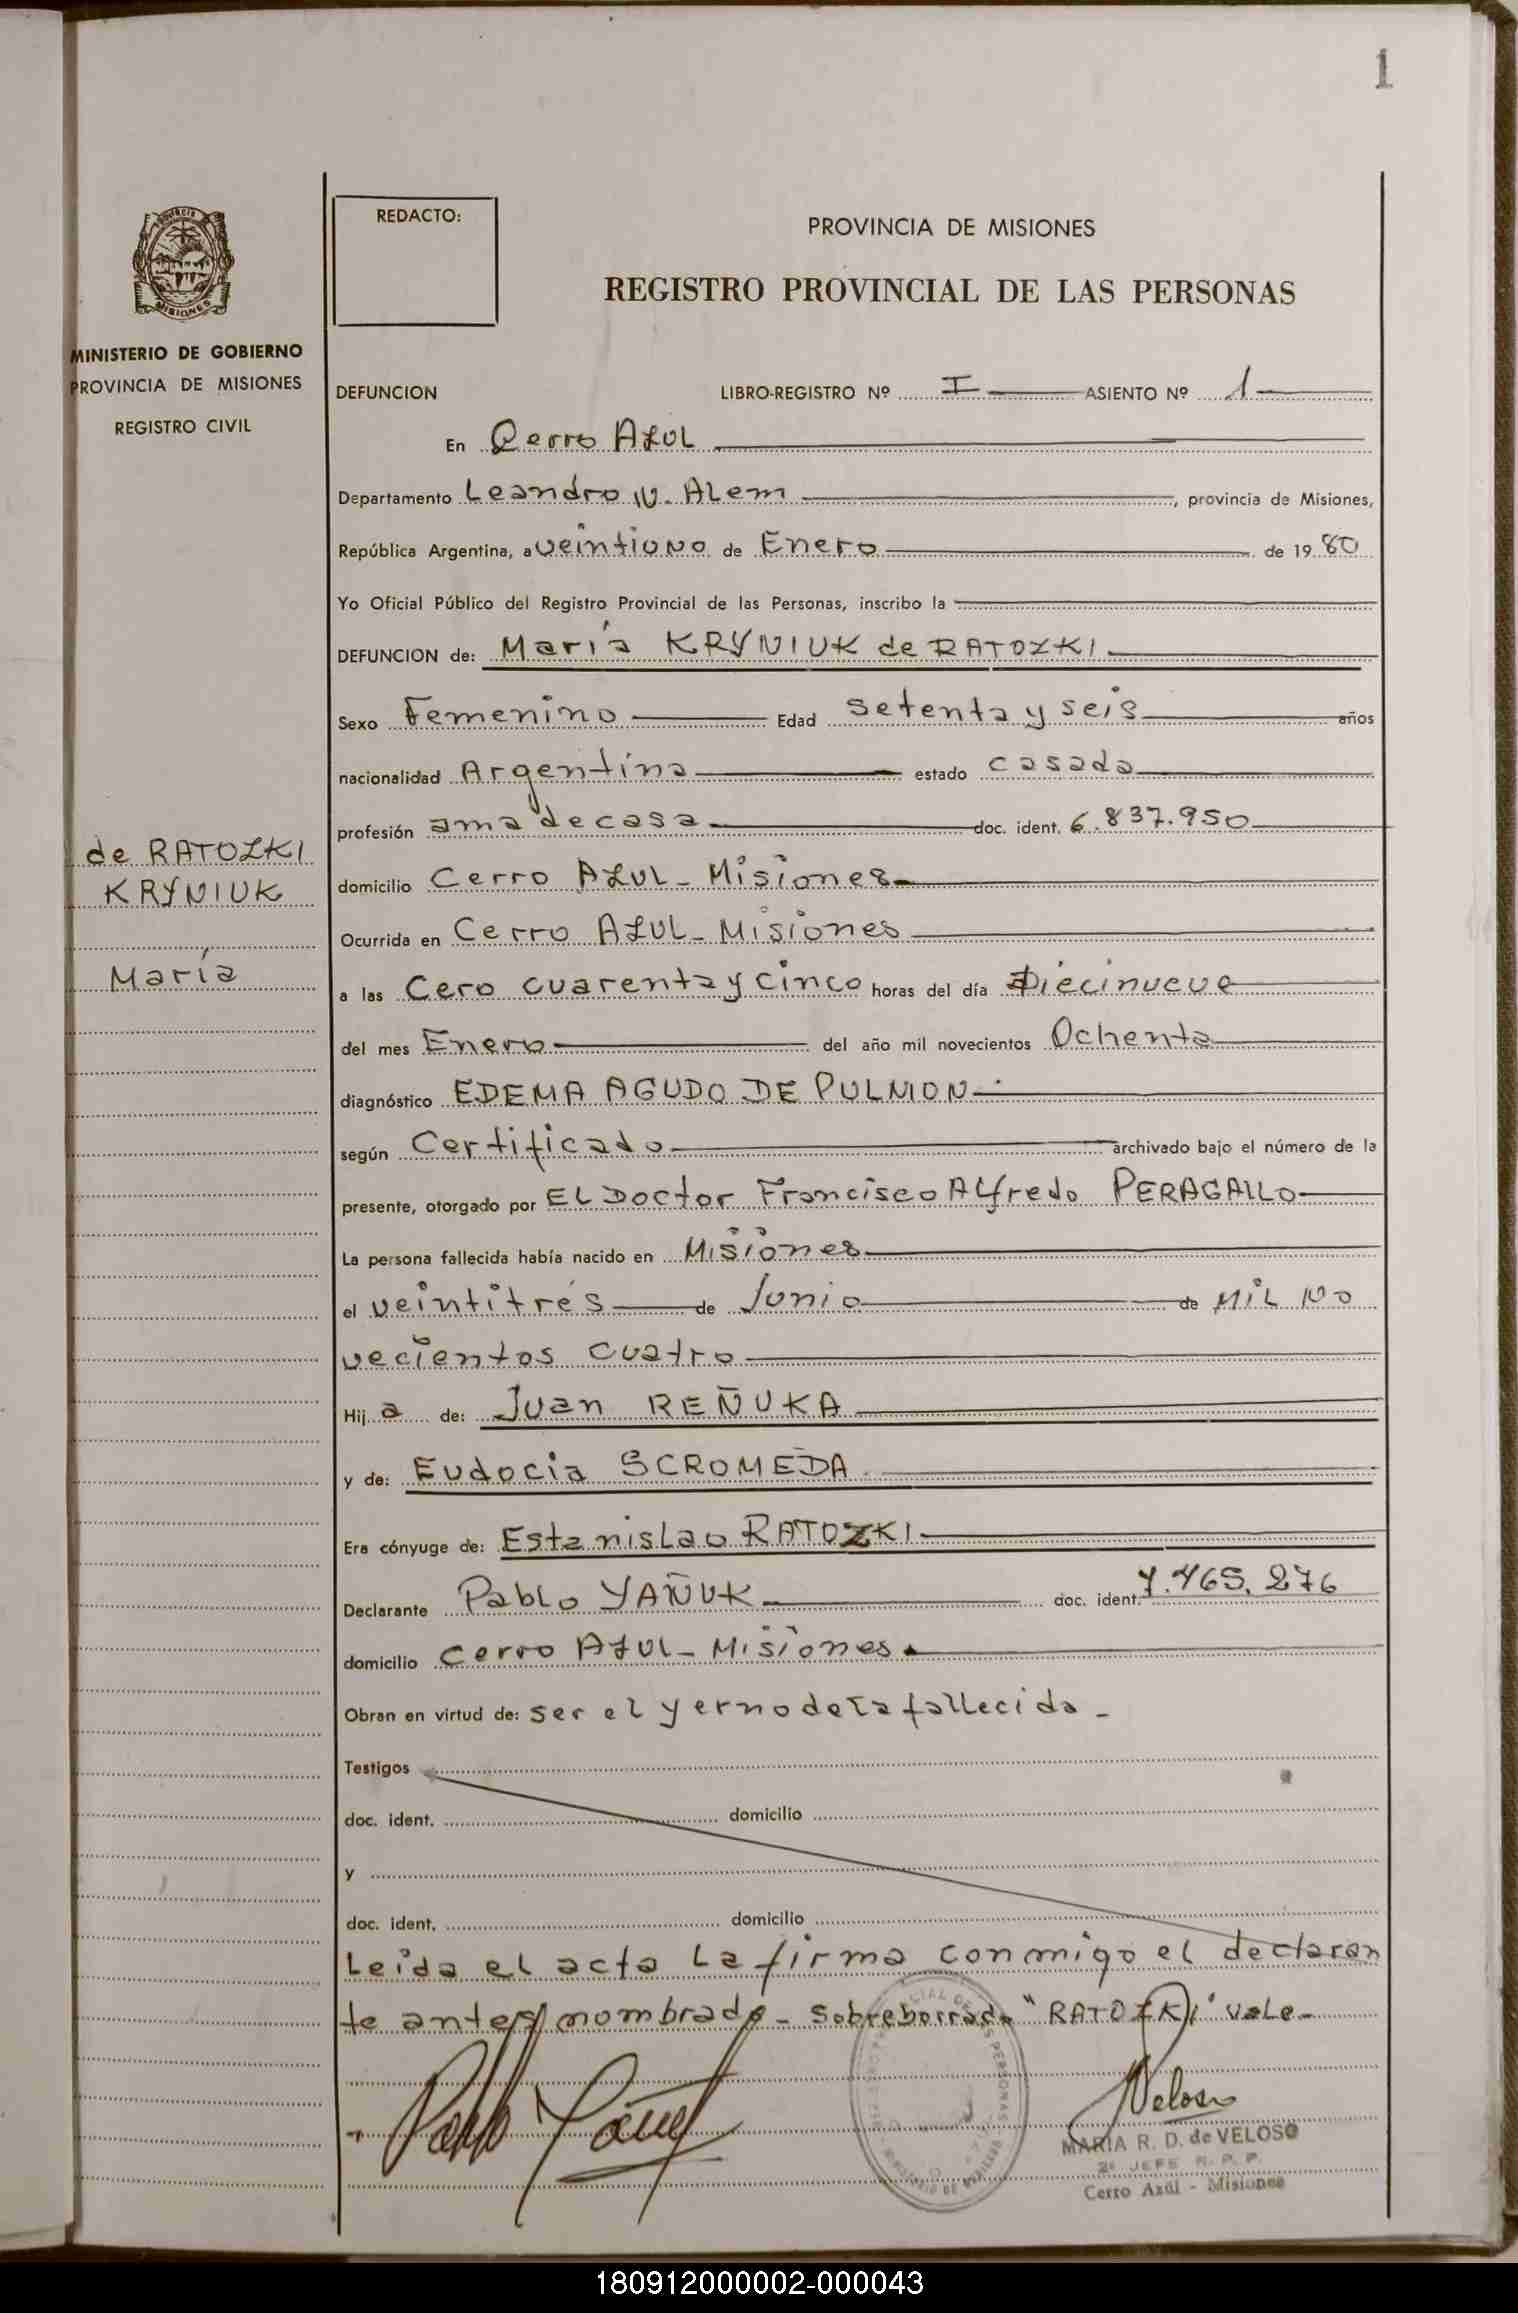 1
REDACTO:
PROVINCIA DE MISIONES
REGISTRO PROVINCIAL DE LAS PERSONAS
MISIONES
MINISTERIO DE GOBIERNO
PROVINCIA DE MISIONES
REGISTRO CIVIL
DEFUNCION LIBRO-REGISTRO Nº I ASIENTO Nº 1
En Cerro AZUL
Departamento Leandro N. ALem, provincia de Misiones,
República Argentina, a veintiuno de Enero de 1980
Yo Oficial Público del Registro Provincial de las Personas, inscribo la
DEFUNCION de: María KRYNIUK de RATOZKI
Sexo Femenino Edad setenta y seis años
nacionalidad Argentina estado casada
profesión ama de casa doc. ident. 6.837.950
de RATOZKI
KRYNIUK
María
domicilio Cerro AZUL - Misiones
Ocurrida en Cerro AZUL - Misiones
a las Cero cuarenta y cinco horas del día Diecinueve
del mes Enero del año mil novecientos Ochenta
diagnóstico EDEMA AGUDO DE PULMON
según Certificado archivado bajo el número de la
presente, otorgado por EL Doctor Francisco Alfredo PERAGALLO
La persona fallecida había nacido en Misiones
el veintitrés de Junio de MIL no
vecientos cuatro
Hij a de: Juan REÑUKA
y de: Eudocia SCROMEDA
Era cónyuge de: Estanislao RATOZKI
Declarante Pablo YAÑUK doc. ident. 7.465.276
domicilio Cerro AZUL - Misiones
Obran en virtud de: ser el yerno de la fallecida -
Testigos
doc. ident. domicilio
y
doc. ident. domicilio
Leida el acta La firma conmigo el declaran
te antes nombrado - sobreborrado "RATOZKI" vale -
Pablo Yañuk
Veloso
MARIA R. D. de VELOSO
2º JEFE R. P. P.
Cerro Azúl - Misiones
180912000002-000043